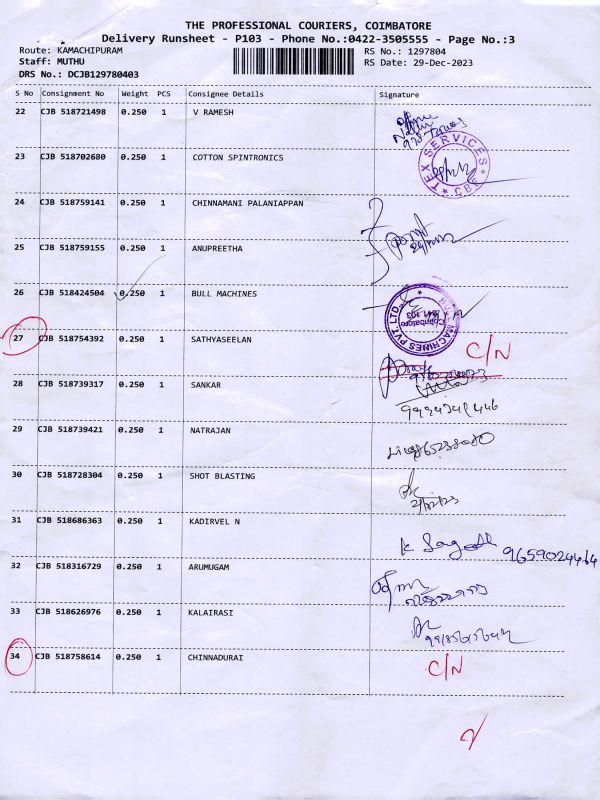 THE PROFESSIONAL COURIERS, COIMBATORE
Delivery Runsheet - P103 - Phone No.:0422-3505555 - Page No.:3
Route: KAMACHIPURAM RS No.: 1297804
Staff: MUTHU RS Date: 29-Dec-2023
DRS No.: DCJB129780403
S No Consignment No Weight PCS Consignee Details Signature
22 CJB 518721498 0.250 1 V RAMESH
23 CJB 518702680 0.250 1 COTTON SPINTRONICS
TEX SERVICES * CBE *
24 CJB 518759141 0.250 1 CHINNAMANI PALANIAPPAN
25 CJB 518759155 0.250 1 ANUPREETHA
26 CJB 518424504 0.250 1 BULL MACHINES
BULL MACHINES PVT LTD. Coimbatore 641 103
27 CJB 518754392 0.250 1 SATHYASEELAN C/N
28 CJB 518739317 0.250 1 SANKAR
29 CJB 518739421 0.250 1 NATRAJAN
30 CJB 518728304 0.250 1 SHOT BLASTING
31 CJB 518686363 0.250 1 KADIRVEL N
K 9659024464
32 CJB 518316729 0.250 1 ARUMUGAM
33 CJB 518626976 0.250 1 KALAIRASI
34 CJB 518758614 0.250 1 CHINNADURAI C/N